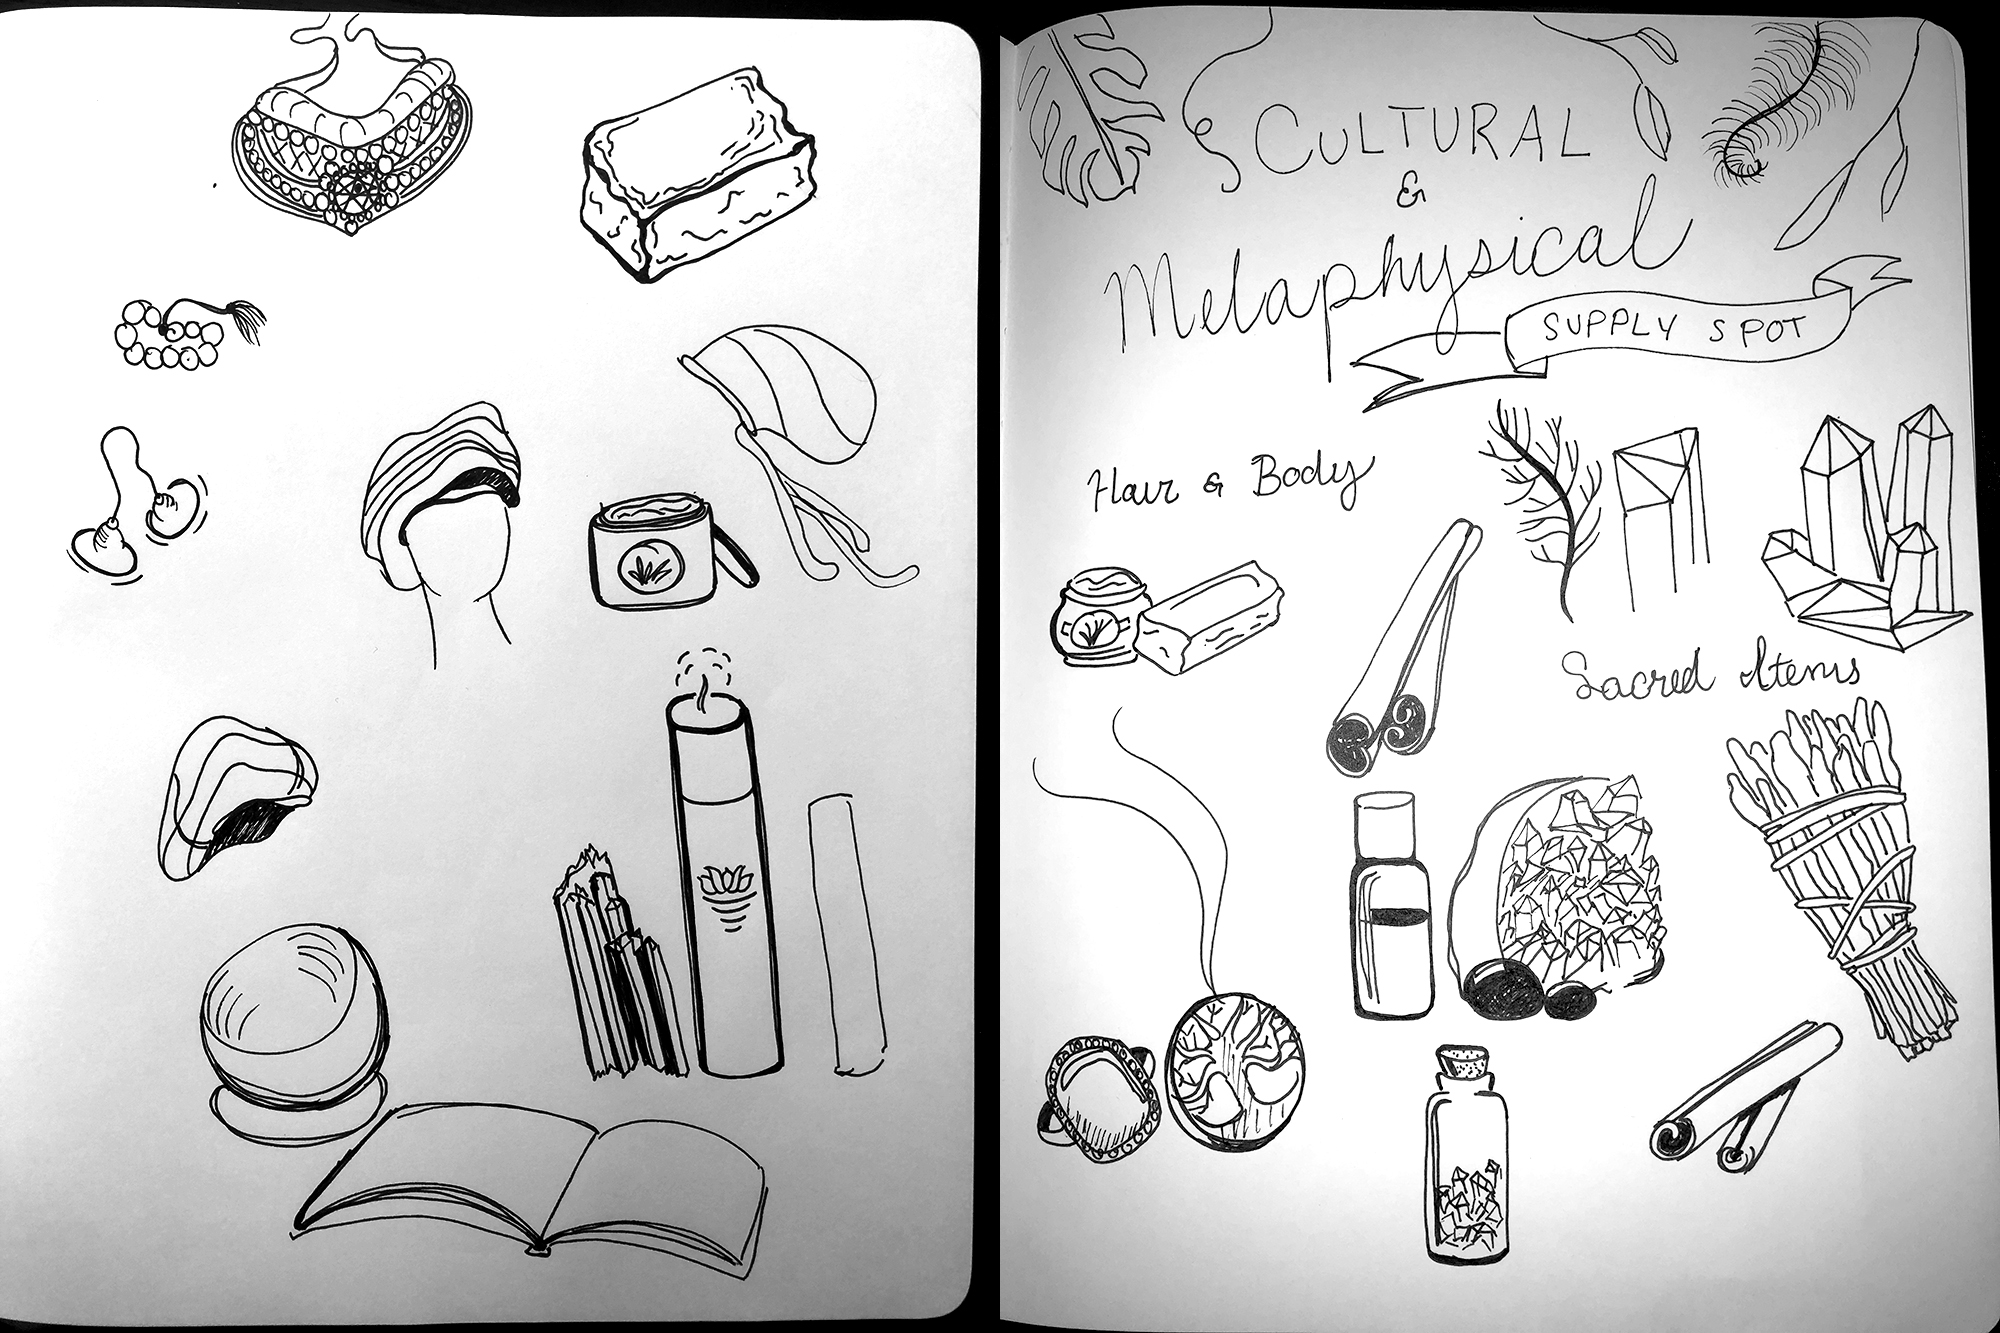 CULTURAL
&
Metaphysical
SUPPLY SPOT
Hair & Body
Sacred Items